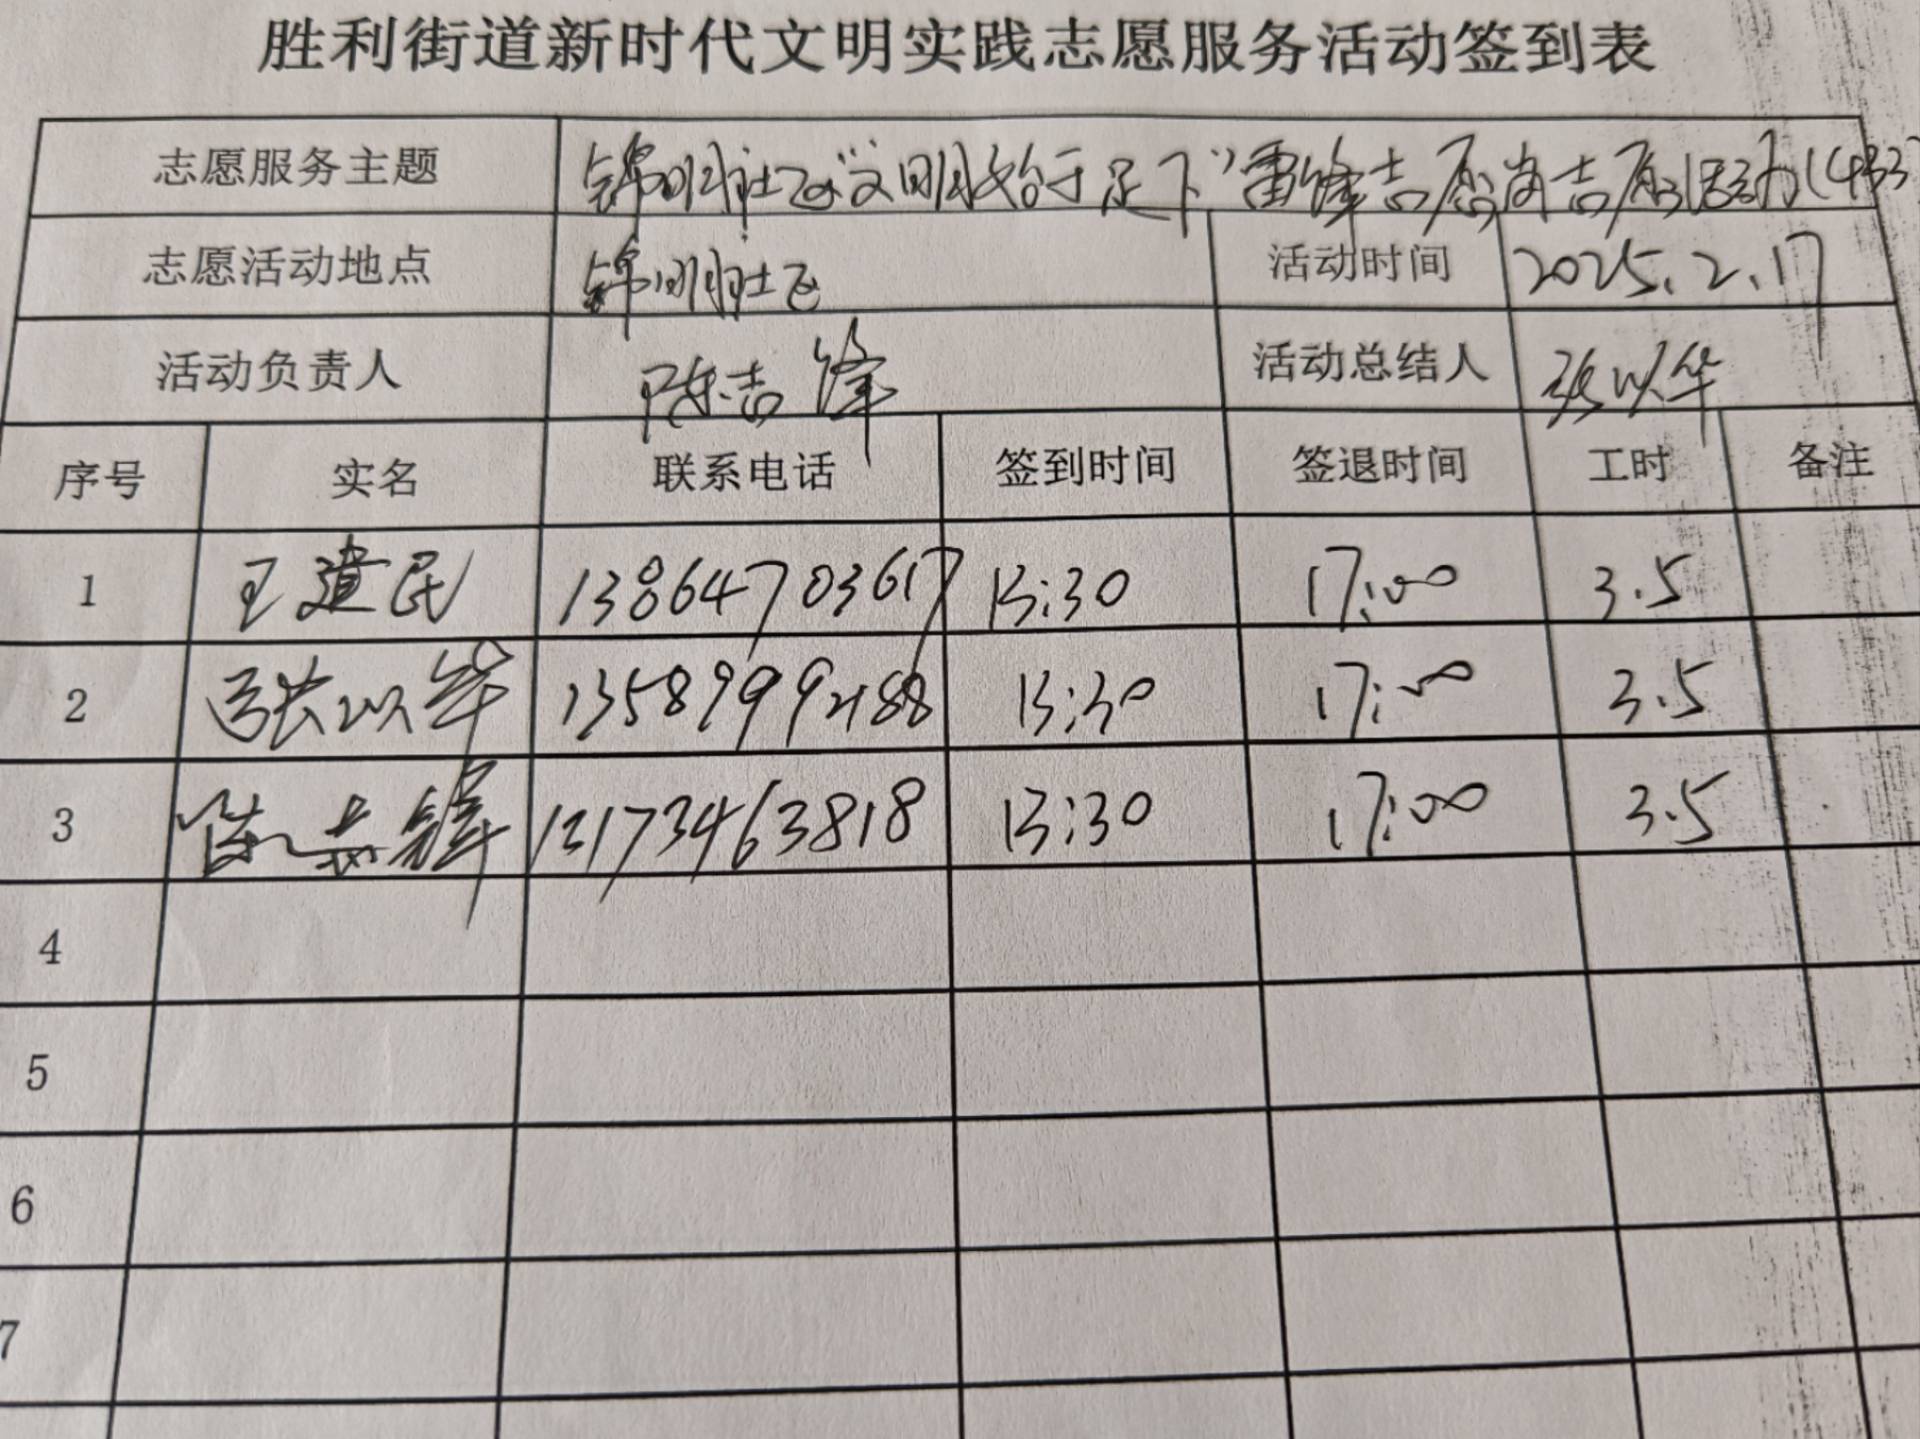 胜利街道新时代文明实践志愿服务活动签到表
志愿服务主题 锦明社区"文明始于足下"雷锋志愿岗志愿活动(433
志愿活动地点 锦明社区 活动时间 2025.2.17
活动负责人 陈吉锋 活动总结人 张以华
序号 实名 联系电话 签到时间 签退时间 工时 备注
1 王建民 13864703617 13:30 17:00 3.5
2 张以华 13589992188 13:30 17:00 3.5
3 锋 13173463818 13:30 17:00 3.5
4
5
6
7